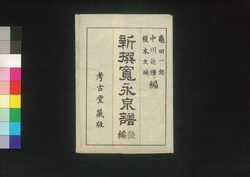 龜田一恕
中川近禮編
榎本文城
新撰寛永泉譜後編
考古堂藏版